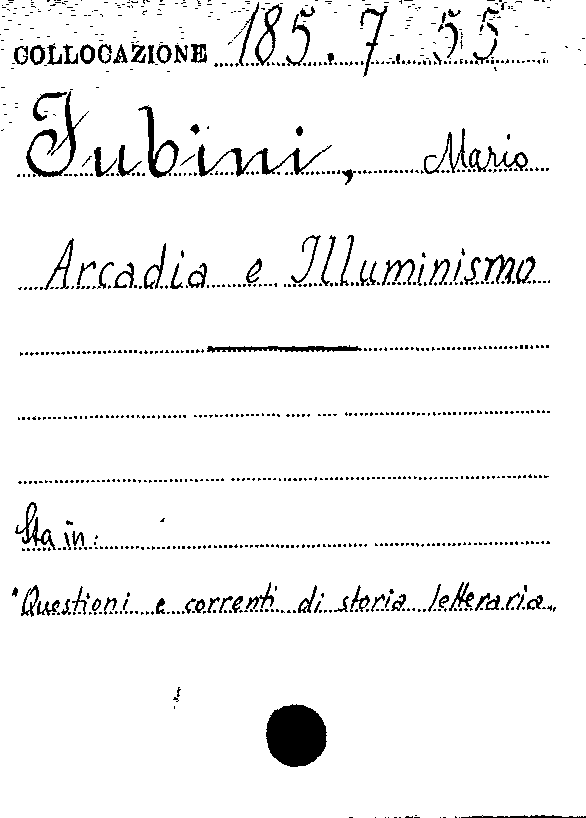 COLLOCAZIONE 185.7.55
Fubini, Mario
Arcadia e Illuminismo
Sta in:
"Questioni e correnti di storia letteraria„